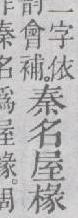 一字依
韵會補。
秦名屋椽
作秦名爲屋椽。周